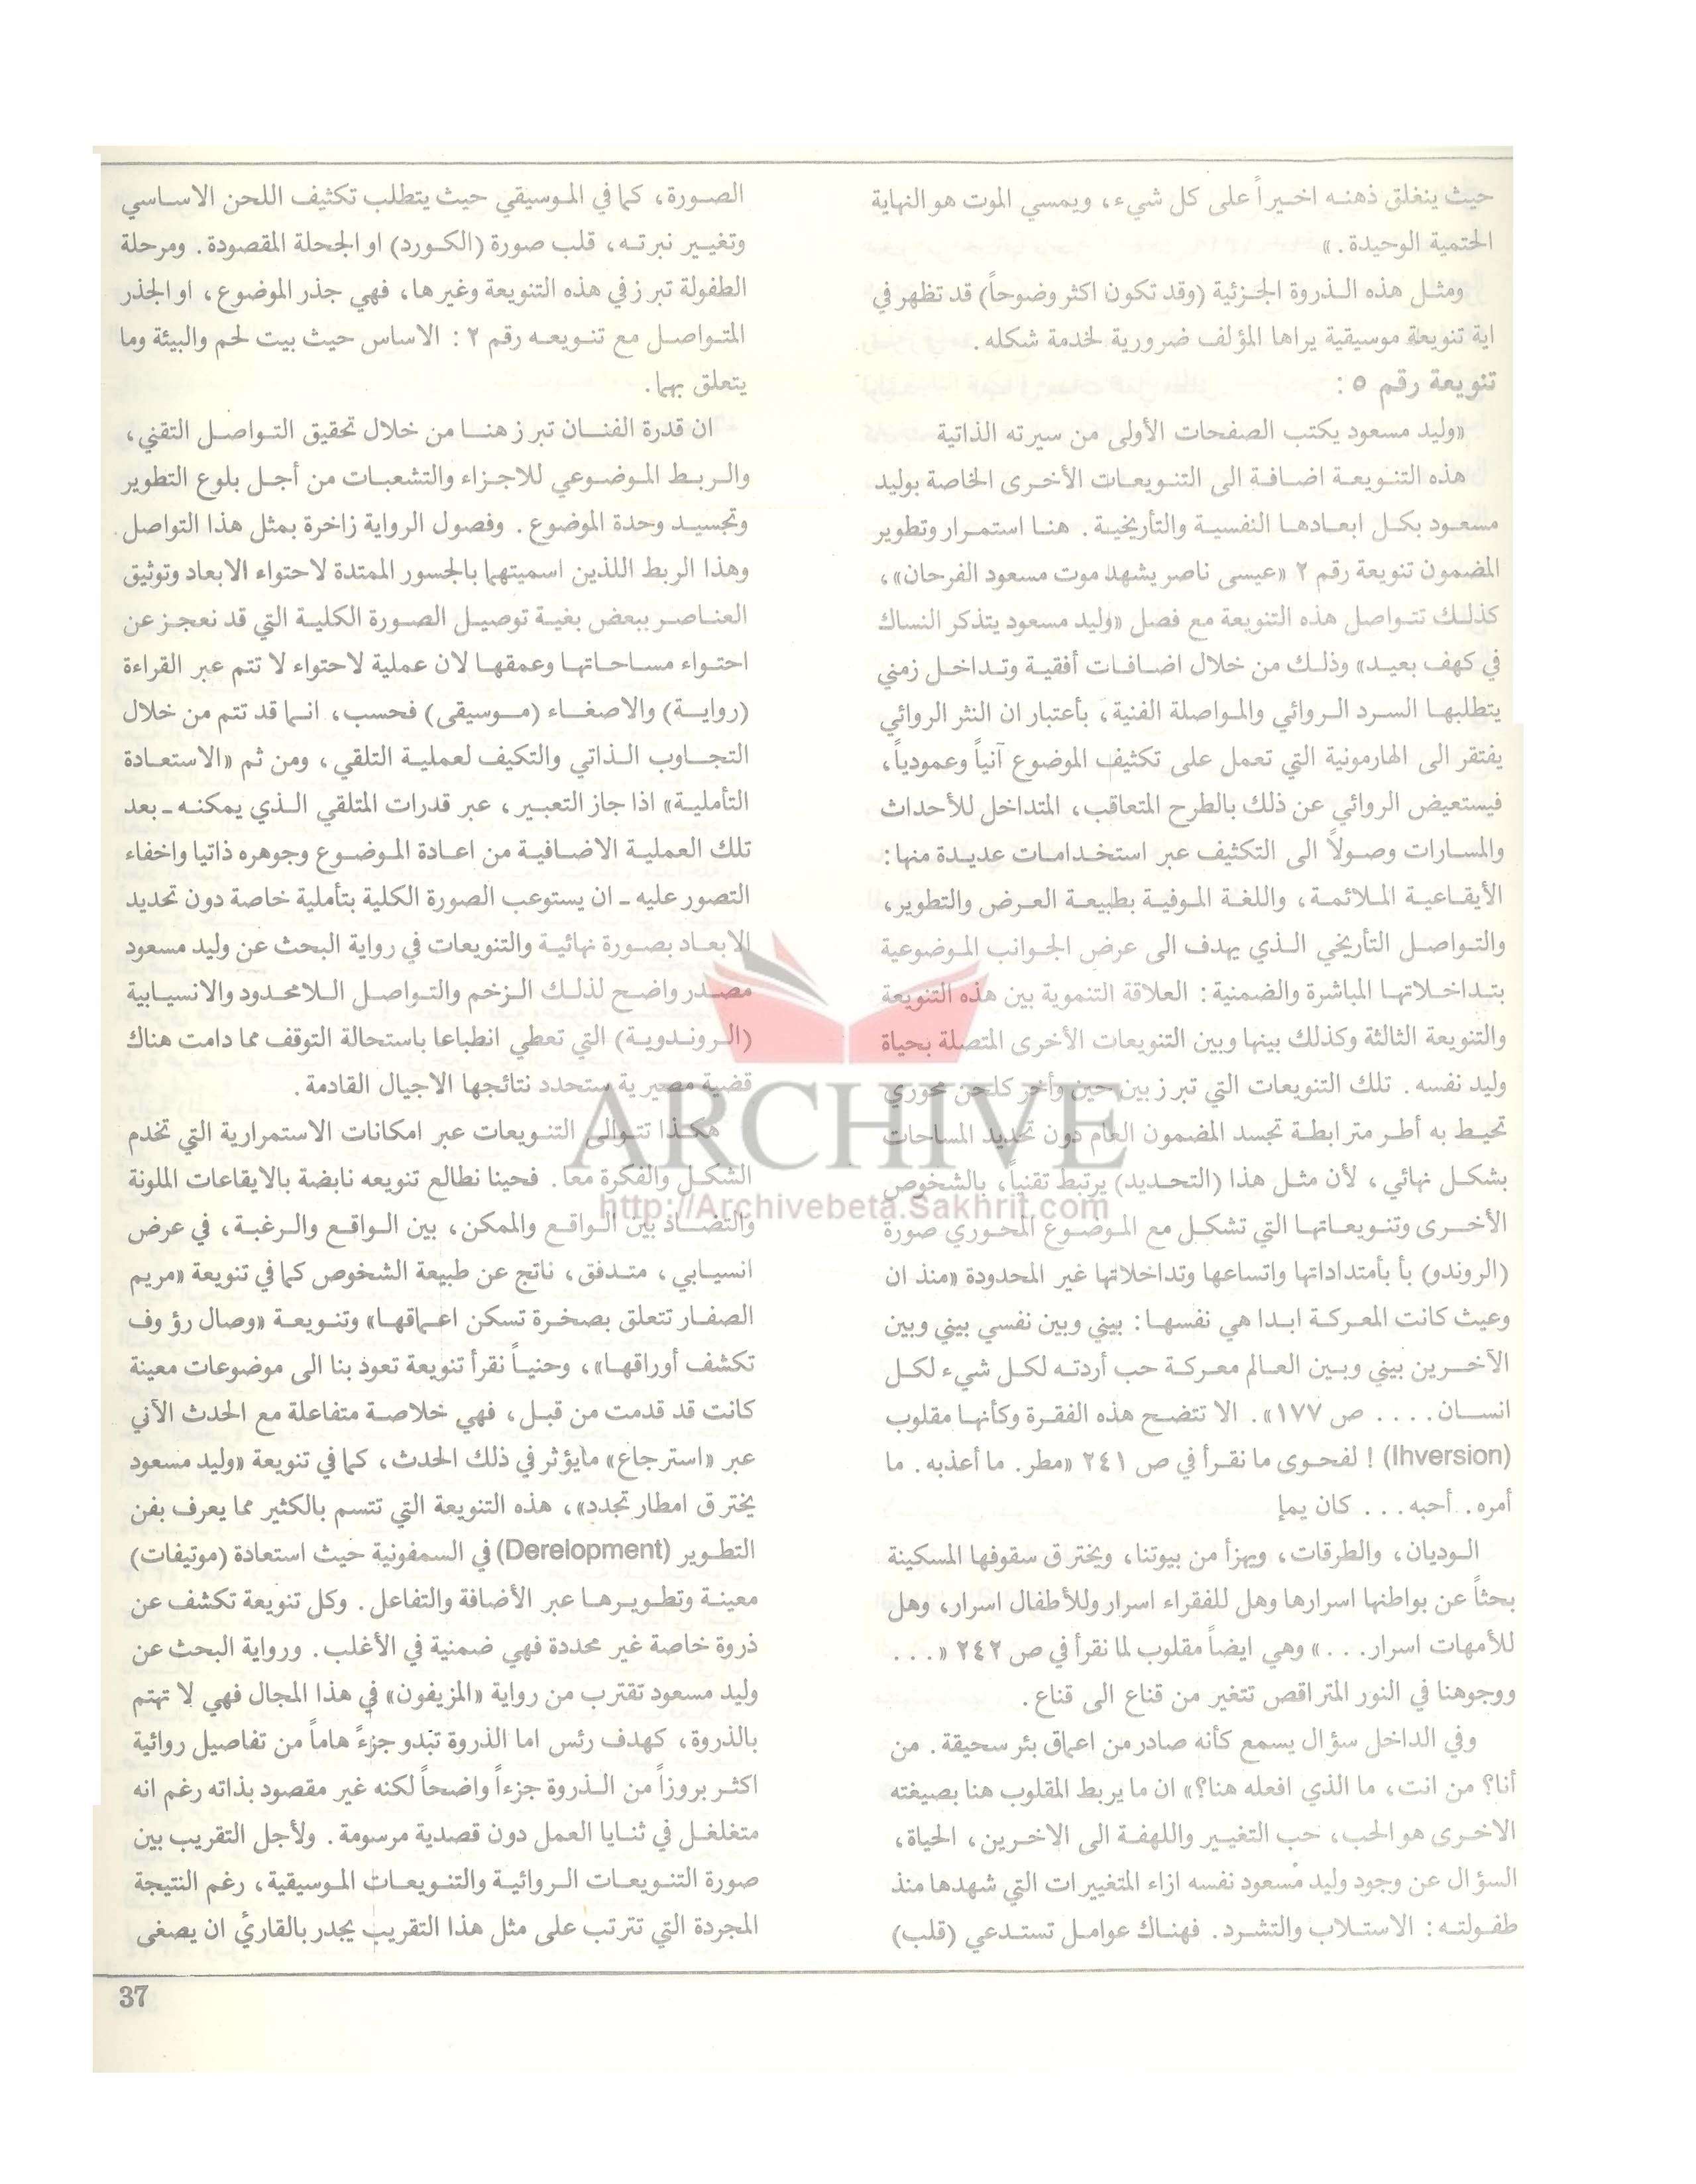 حيث ينغلق ذهنه اخيراً على كل شيء، ويمسي الموت هو النهاية
الحتمية الوحيدة. »
ومثل هذه الذروة الجزئية (وقد تكون اكثر وضوحاً) قد تظهر في
اية تنويعة موسيقية يراها المؤلف ضرورية لخدمة شكله.
تنويعة رقم ٥ :
«وليد مسعود يكتب الصفحات الأولى من سيرته الذاتية
هذه التنويعة اضافة الى التنويعات الأخرى الخاصة بوليد
مسعود بكل ابعادها النفسية والتأريخية. هنا استمرار وتطوير
المضمون تنويعة رقم ٢ «عيسى ناصر يشهد موت مسعود الفرحان»،
كذلك تتواصل هذه التنويعة مع فصل «وليد مسعود يتذكر النساك
في كهف بعيد» وذلك من خلال اضافات أفقية وتداخل زمني
يتطلبها السرد الروائي والمواصلة الفنية، بأعتبار ان النثر الروائي
يفتقر الى الهارمونية التي تعمل على تكثيف الموضوع آنياً وعمودياً،
فيستعيض الروائي عن ذلك بالطرح المتعاقب، المتداخل للأحداث
والمسارات وصولاً الى التكثيف عبر استخدامات عديدة منها:
الأيقاعية الملائمة، واللغة الموفية بطبيعة العرض والتطوير،
والتواصل التأريخي الذي يهدف الى عرض الجوانب الموضوعية
بتداخلاتها المباشرة والضمنية: العلاقة التنموية بين هذه التنويعة
والتنويعة الثالثة وكذلك بينها وبين التنويعات الأخرى المتصلة بحياة
وليد نفسه. تلك التنويعات التي تبرز بين حين وأخر كلحن محوري
تحيط به أطر مترابطة تجسد المضمون العام دون تحديد المساحات
بشكل نهائي، لأن مثل هذا (التحديد) يرتبط تقنياً، بالشخوص
الأخرى وتنويعاتها التي تشكل مع الموضوع المحوري صورة
(الروندو) بأ بأمتداداتها واتساعها وتداخلاتها غير المحدودة «منذ ان
وعيث كانت المعركة ابدا هي نفسها: بيني وبين نفسي بيني وبين
الآخرين بيني وبين العالم معركة حب أردته لكل شيء لكل
انسان.... ص ١٧٧». الا تتضح هذه الفقرة وكأنها مقلوب
(Ihversion) ! لفحوى ما نقرأ في ص ٢٤١ «مطر. ما أعذبه. ما
أمره.. أحبه... كان يمإ
الوديان، والطرقات، ويهزأ من بيوتنا، ويخترق سقوفها المسكينة
بحثاً عن بواطنها اسرارها وهل للفقراء اسرار وللأطفال اسرار، وهل
للأمهات اسرار...» وهي ايضاً مقلوب لما نقرأ في ص ٢٤٢ «...
ووجوهنا في النور المتراقص تتغير من قناع الى قناع.
وفي الداخل سؤال يسمع كأنه صادر من اعماق بئر سحيقة. من
أنا؟ من انت، ما الذي افعله هنا؟» ان ما يربط المقلوب هنا بصيغته
الاخرى هو الحب، حب التغيير واللهفة الى الاخرين، الحياة،
السؤال عن وجود وليد مسعود نفسه ازاء المتغييرات التي شهدها منذ
طفولته: الاستلاب والتشرد. فهناك عوامل تستدعي (قلب)
الصورة، كما في الموسيقي حيث يتطلب تكثيف اللحن الاساسي
وتغيير نبرته، قلب صورة (الكورد) او الجحلة المقصودة. ومرحلة
الطفولة تبرز في هذه التنويعة وغيرها، فهي جذر الموضوع، او الجذر
المتواصل مع تنويعه رقم ٢ : الاساس حيث بيت لحم والبيئة وما
يتعلق بهما.
ان قدرة الفنان تبرز هنا من خلال تحقيق التواصل التقني،
والربط الموضوعي للاجزاء والتشعبات من أجل بلوع التطوير
وتجسيد وحدة الموضوع. وفصول الرواية زاخرة بمثل هذا التواصل
وهذا الربط اللذين اسميتهما بالجسور الممتدة لاحتواء الابعاد وتوثيق
العناصر ببعض بغية توصيل الصورة الكلية التي قد نعجز عن
احتواء مساحاتها وعمقها لان عملية لاحتواء لا تتم عبر القراءة
(رواية) والاصغاء (موسيقى) فحسب، انما قد تتم من خلال
التجاوب الذاتي والتكيف لعملية التلقي، ومن ثم «الاستعادة
التأملية» اذا جاز التعبير، عبر قدرات المتلقي الذي يمكنه ـ بعد
تلك العملية الاضافية من اعادة الموضوع وجوهره ذاتيا واخفاء
التصور عليه ـ ان يستوعب الصورة الكلية بتأملية خاصة دون تحديد
الابعاد بصورة نهائية والتنويعات في رواية البحث عن وليد مسعود
مصدر واضح لذلك الزخم والتواصل اللامحدود والانسيابية
(الروندوية) التي تعطي انطباعا باستحالة التوقف مما دامت هناك
قضية مصيرية ستحدد نتائجها الاجيال القادمة.
هكذا تتوالى التنويعات عبر امكانات الاستمرارية التي تخدم
الشكل والفكرة معا. فحينا نطالع تنويعه نابضة بالايقاعات الملونة
والتضاد بين الواقع والممكن، بين الواقع والرغبة، في عرض
انسيابي، متدفق، ناتج عن طبيعة الشخوص كما في تنويعة «مريم
الصفار تتعلق بصخرة تسكن اعماقها» وتنويعة «وصال رؤوف
تكشف أوراقها»، وحنيأ نقرأ تنويعة تعود بنا الى موضوعات معينة
كانت قد قدمت من قبل، فهي خلاصة متفاعلة مع الحدث الآني
عبر «استرجاع» مايؤثر في ذلك الحدث، كما في تنويعة «وليد مسعود
يخترق امطار تجدد»، هذه التنويعة التي تتسم بالكثير مما يعرف بفن
التطوير (Derelopment) في السمفونية حيث استعادة (موتيفات)
معينة وتطويرها عبر الأضافة والتفاعل. وكل تنويعة تكشف عن
ذروة خاصة غير محددة فهي ضمنية في الأغلب. ورواية البحث عن
وليد مسعود تقترب من رواية «المزيفون» في هذا المجال فهي لا تهتم
بالذروة، كهدف رئس اما الذروة تبدو جزءً هاماً من تفاصيل روائية
اكثر بروزاً من الذروة جزءاً واضحاً لكنه غير مقصود بذاته رغم انه
متغلغل في ثنايا العمل دون قصدية مرسومة. ولأجل التقريب بين
صورة التنويعات الروائية والتنويعات الموسيقية، رغم النتيجة
المجردة التي تترتب على مثل هذا التقريب يجدر بالقارئ ان يصغى
37
ARCHIVE
http://Archivebeta.Sakhrit.com